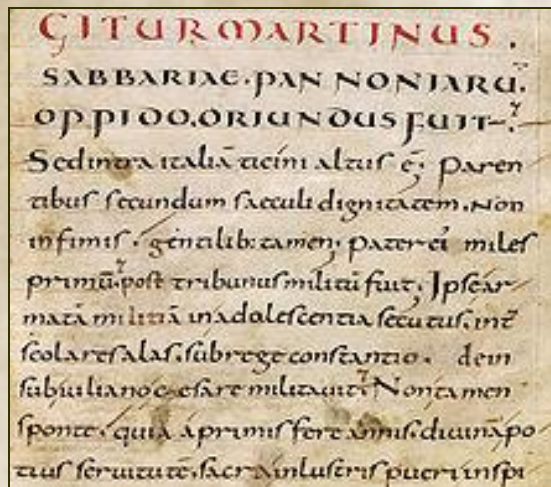 GITUR MARTINUS.
SABBARIAE. PANNONIARŪ.
OPPIDO. ORIUNDUS FUIT.
Sed intra italiā ticini altus ē; Paren
tibus secundum saeculi dignitatem. Non
infimis. gentilib: tamen; Pater ei miles
primū. post tribunus militū fuit. Ipse ar
matā militiā in adolescentia secutus. int̄
scolares alas. sub rege constantio. dein
sub iuliano cęsare militavit; Non tamen
sponte. quia a primis fere annis. divinā po
tius servitutē. sacra inlustris pueri inspi